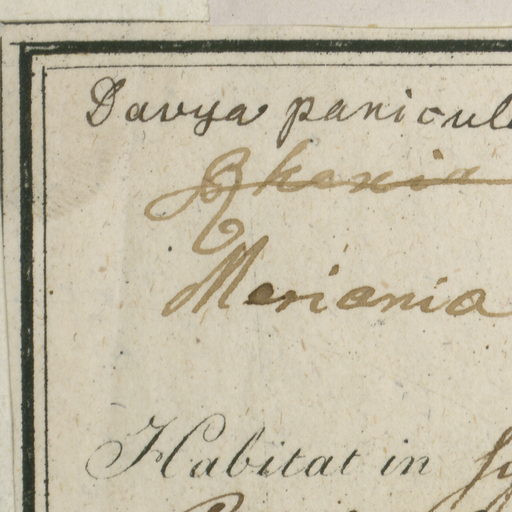 Davya panicul
Meriania
Habitat in